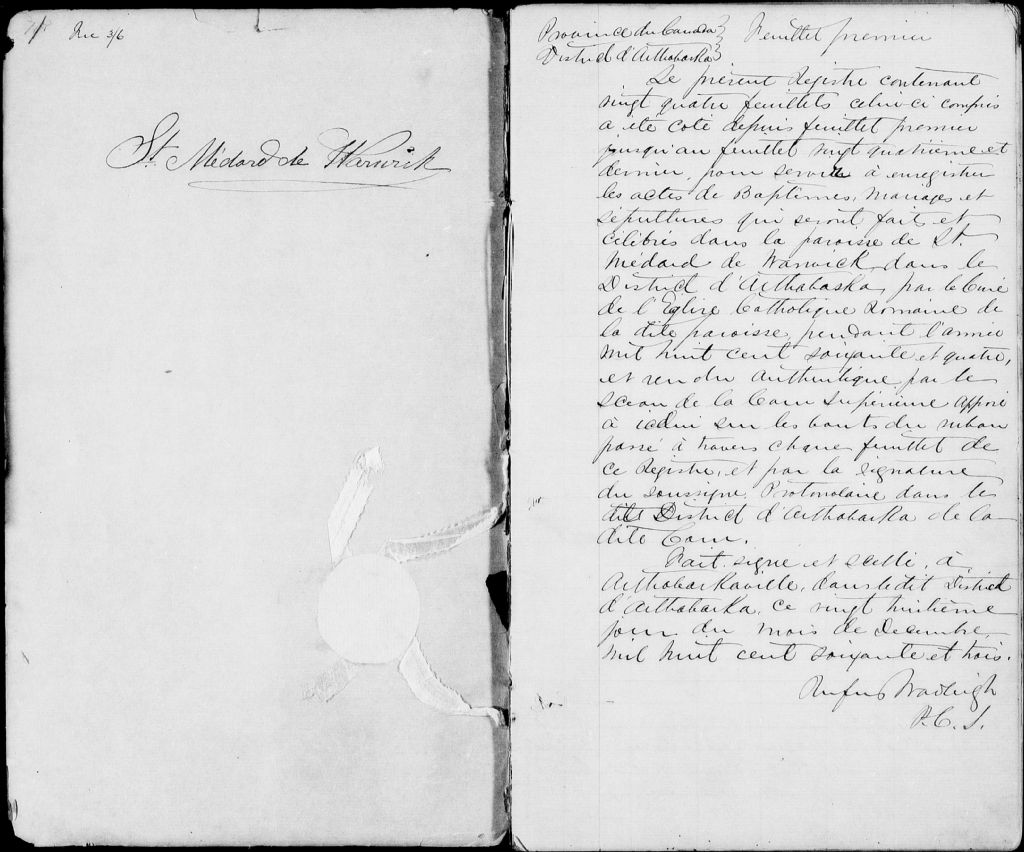 Rec 3/6
St Médard de Warwick
Province du Canada } Feuillet premier
District d'Arthabaska }
Le présent Registre contenant
vingt quatre feuillets celui-ci compris
a été coté depuis feuillet premier
jusqu'au feuillet vingt quatrième et
dernier, pour servir à enregistrer
les actes de Baptêmes, Mariages et
sépultures qui seront fait et
célébrés dans la paroisse de St.
Médard de Warwick, dans le
District d'Arthabaska, par le Curé
de l'Eglise Catholique Romaine de
la dite paroisse, pendant l'année
mil huit cent soixante et quatre,
et rendu authentique par le
sceau de la Cour Supérieure apposé
à icelui sur les bouts du ruban
passé à travers chaque feuillet de
ce Registre, et par la signature
du soussigné Protonotaire dans le
dit District d'Arthabaska de la
dite Cour.
Fait, signé et scellé, à
Arthabaskaville, dans ledit District
d'Arthabaska, ce vingt huitième
jour du mois de Décembre
mil huit cent soixante et trois.
Rufus Wadleigh
P. C. S.